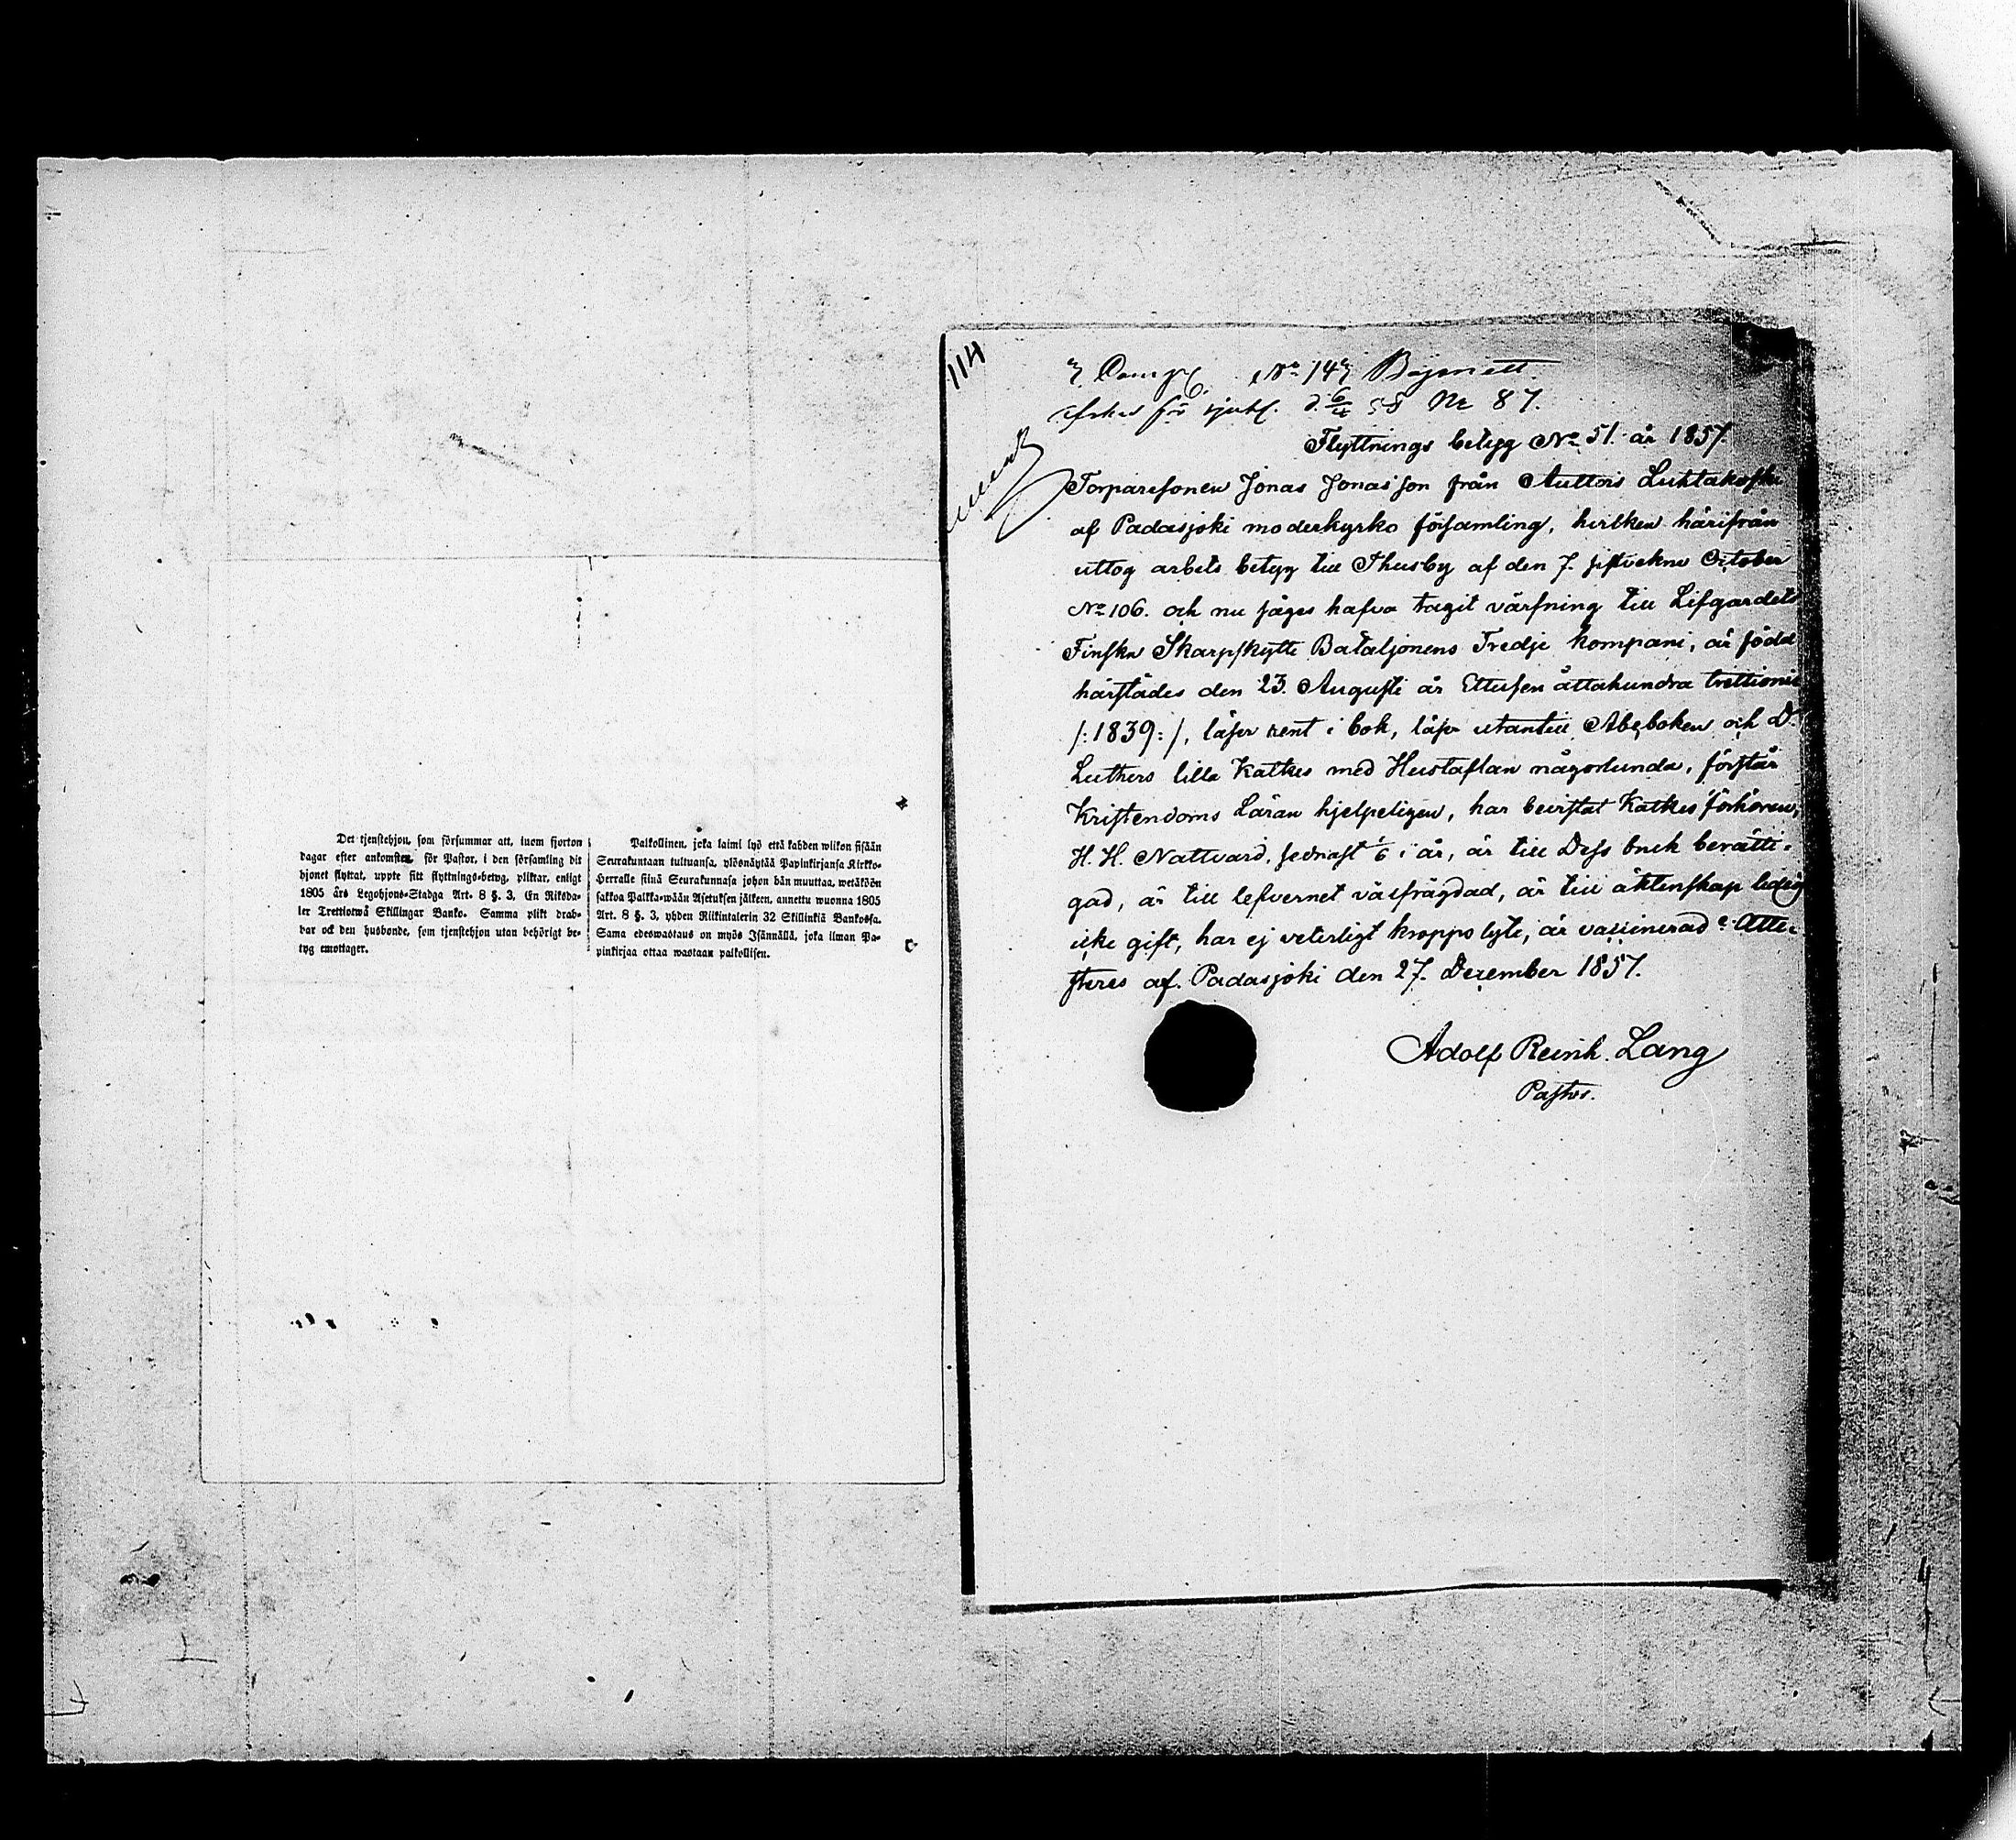 Det tjenstehjon, som försummar att, inom fjorton
dagar efter ankomsten för Pastor, i den församling dit
hjonet flyttat, uppte sitt flyttnings-betyg, pliktar, enligt
1805 års Legohjons-Stadga Art. 8 §. 3. En Riksda-
ler Trettiotwå Skillingar Banko. Samma plikt drab-
bar ock den husbonde, som tjenstehjon utan behörigt be-
tyg emottager.
Palkollinen, joka laimi lyö että kahden wiikon sisään
Seurakuntaan tultuansa, ylösnäytää Papinkirjansa Kirkko-
Herralle siinä Seurakunnasa johon hän muuttaa, wetäköön
sakkoa Palkka-wään Asetuksen jälkeen, annettu wuonna 1805
Art. 8 §. 3, yhden Riikintalerin 32 Skillinkiä Bankossa.
Sama edeswastaus on myös Isännällä, joka ilman Pa-
pinkirjaa ottaa wastaan palkollisen.
114
3 Comp. No 143 Bajonett.
d. 6/4 58 No 87.
Flyttnings betyg No 51. år 1857.
Torparesonen Jonas Jonasson från Auttois Luhtakoski
af Padasjoki moderkyrko församling, hvilken härifrån
uttog arbets betyg till Thusby af den 7. sistvekne October
No 106. och nu säges hafva tagit värfning till Lifgardets
Finska Skarpskytte Bataljonens Tredje Kompani, är född
härstädes den 23. Augusti år Ettusen åttahundra trettionie
/:1839:/, läser rent i bok, läser utantill Abcboken och D.
Luthers lilla Katkes med Hustaflan någorlunda, förstår
Kristendoms Läran hjelpeligen, har bevistat Katkes förhören,
H. H. Nattvard, sednast 1/6 i år, är till Dess bruk berätti-
gad, är till lefvernet välfrägdad, är till äktenskap ledig
icke gift, har ej veterligt kropps lyte, är vaccinerad: Atte-
steres af. Padasjoki den 27. December 1857.
Adolf Reinh. Lang
Pastor.